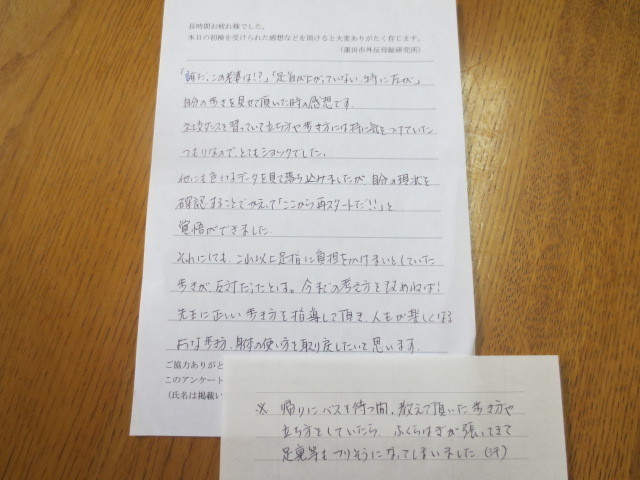 長時間お疲れ様でした。
本日の初検を受けられた感想などを頂けると大変ありがたく存じます。
(蓮田市外反母趾研究所)
「誰だ、この老婆は!?」「足首が上がっていない、特に左が」
自分の歩きを見せて頂いた時の感想です。
社交ダンスを習っていて立ち方や歩き方には特に気をつけていた
つもりなので、とてもショックでした。
他にも色々なデータを見て落ち込みましたが、自分の現状を
確認することでかえって「ここから再スタートだ!!」と
覚悟ができました。
それにしても、これ以上足指に負担をかけまいとしていた
歩きが反対だったとは。今までの考え方を改めねば!
先生に正しい歩き方を指導して頂き、人生が楽しくなる
ような歩き方、身体の使い方を取り戻したいと思います。
ご協力ありがと
このアンケート
(氏名は掲載い
※ 帰りにバスを待つ間、教えて頂いた歩き方や
立ち方をしていたら、ふくらはぎが張ってきて
足裏等もつりそうになってしまいました(汗)